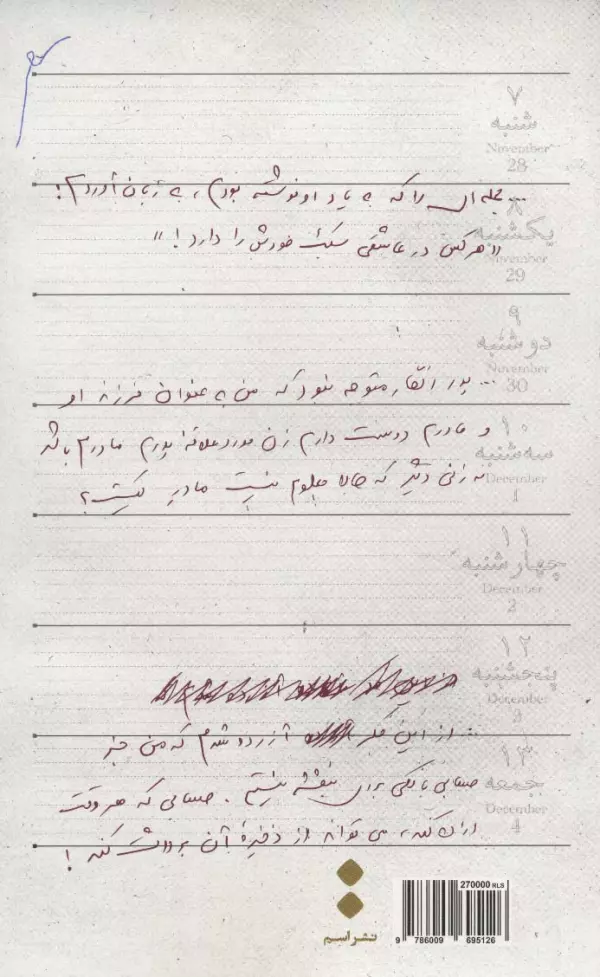 ۷
شنبه
November
28
... جمله‌ای را که به یاد او نوشته بودم، به زبان آوردم:
۸
یکشنبه
«هر کس در عاشقی سبک خودش را دارد!»
November
29
۹
دوشنبه
November
30
... پدر انگار متوجه نبود که من به عنوان فرزند او
۱۰
و مادرم دوست دارم زن مورد علاقهٔ پدرم مادرم باشد
سه‌شنبه
نه زنی دیگر که حالا معلوم نیست مادر کیست؟
December
1
۱۱
چهارشنبه
December
2
۱۲
پنجشنبه
December
3
... از این فکر آزرده شدم که من جز
۱۳
حسابی بانکی برای بنفشه نیستم. حسابی که هر وقت
جمعه
December
اراده کند، می تواند از ذخیرهٔ آن برداشت کند!
4
نشر اسم
270000 RLS
9 786009 695126